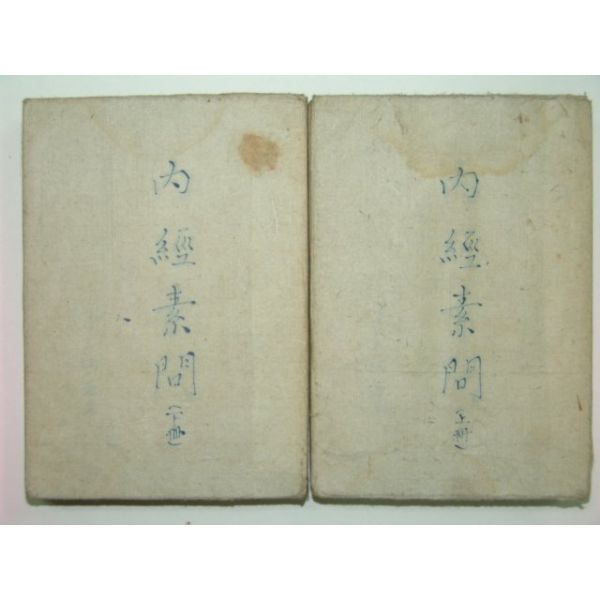 內經素問（上冊）
內經素問（下冊）